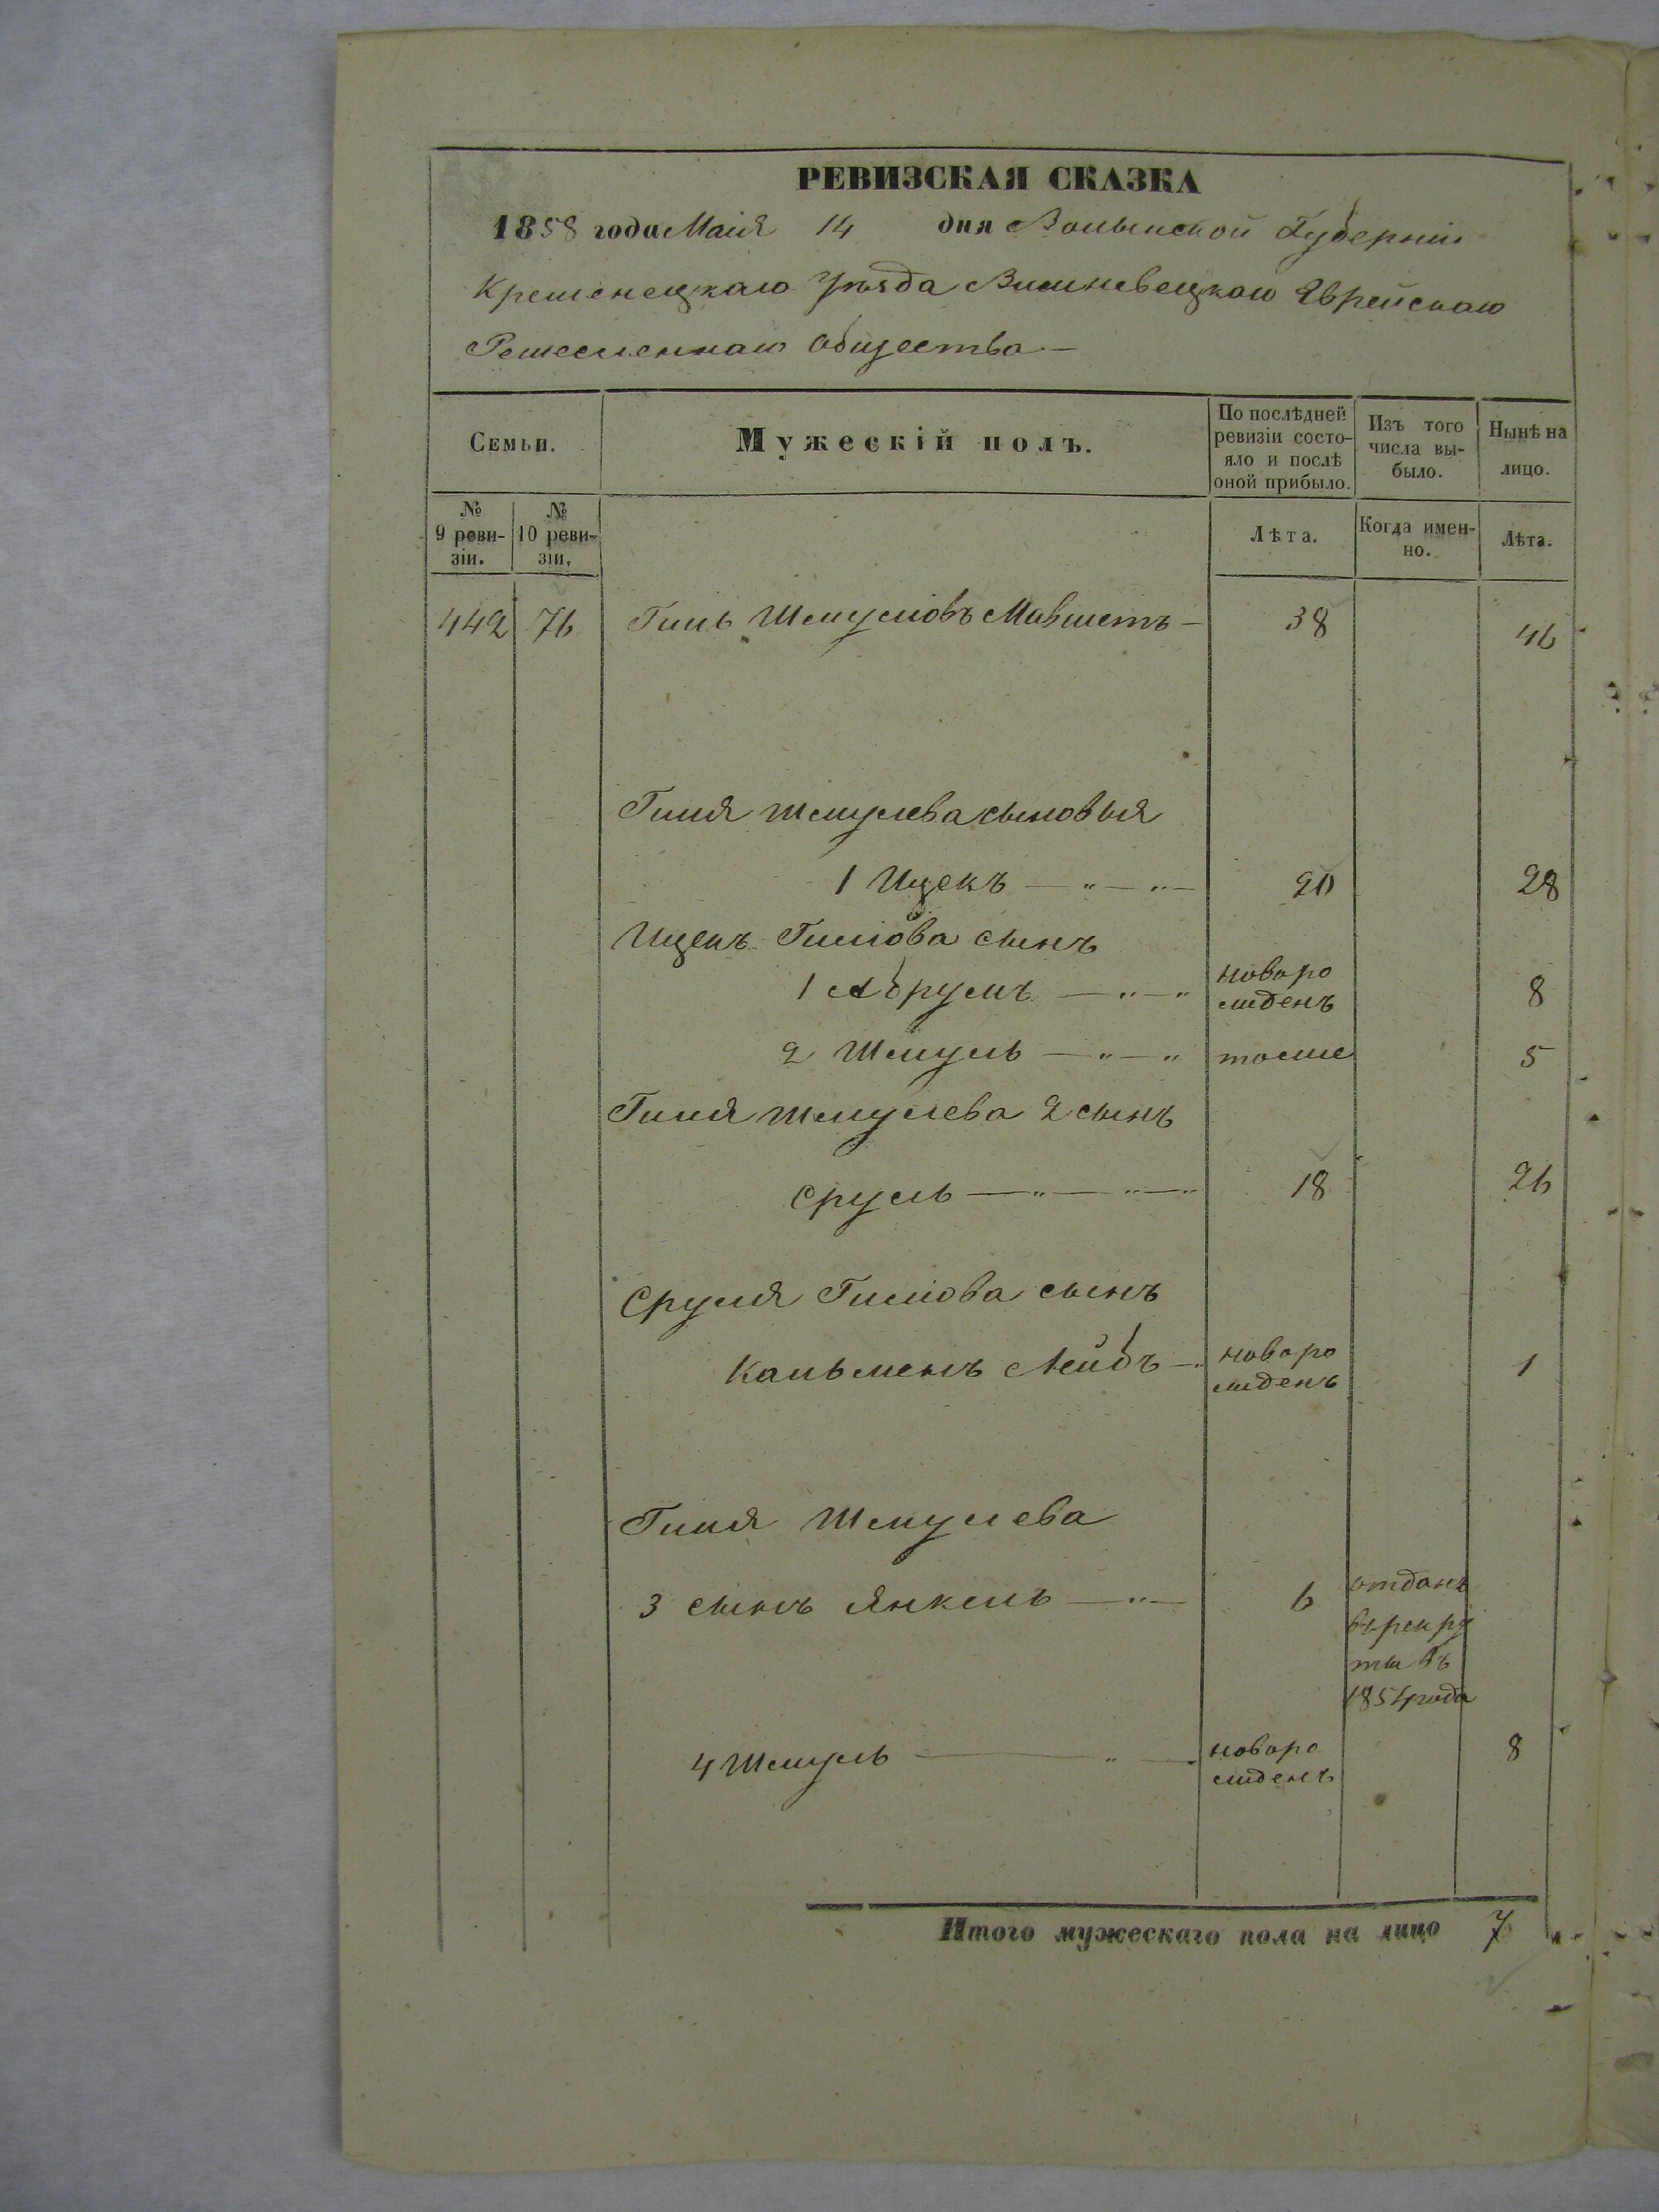 РЕВИЗСКАЯ СКАЗКА
1858 года Маія 14 дня Волынской Губерніи
Кременецкаго Уѣзда Вишневецкаго Еврейскаго
Ремесленнаго Общества —
Семьи.
Мужескій полъ.
По послѣдней ревизіи состояло и послѣ оной прибыло.
Изъ того числа выбыло.
Нынѣ на лицо.
№ 9 ревизіи.
№ 10 ревизіи.
Лѣта.
Когда именно.
Лѣта.
442 76 Гиль Шмулiовъ — 38 46
Гиля Шмулева сыновья
1 Ицекъ — " — " — 20 28
Ицекъ Гилiова сынъ
1 Абрумъ — " — " новорожденъ 8
2 Шмуль — " — " тоже 5
Гиля Шмулева 2 сынъ
Сруль — " — " — " 18 26
Сруля Гилiова сынъ
Кальменъ Лейбъ — " новорожденъ 1
Гиля Шмулева
3 сынъ Янкель — " — 6 отданъ въ рекруты въ 1854 года
4 Шмуль — " — новорожденъ 8
Итого мужескаго пола на лицо 7